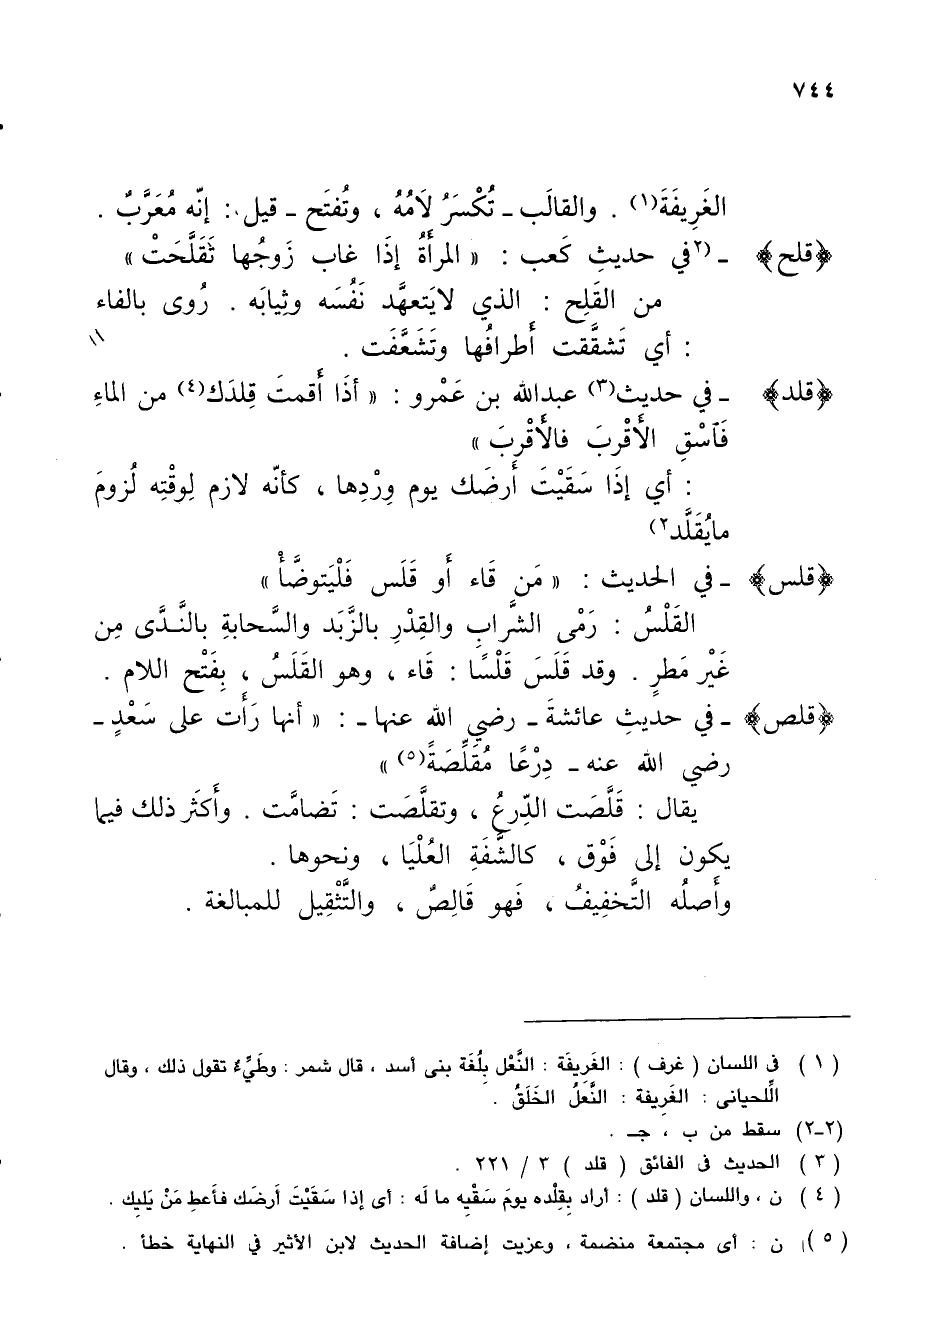 ٧٤٤
الغَرِيفَة(١) . والقالَب ـ تُكْسَرُ لَامُهُ ، وتُفتَح ـ قيل : إنّه مُعَرَّبٌ .
﴿قلح﴾ ـ (٢في حديثِ كَعب : « المرأَةُ إذَا غاب زَوجُها تَقَلَّحَتْ »
من القَلِح : الذي لايَتعهَّد نَفْسَه وثِيابَه . رُوى بالفاء
: أي تَشقَّقت أَطرافُها وتَشَعَّفَت .
﴿قلد﴾ ـ في حديث(٣) عبدالله بن عَمْرو : « أذَا أَقمتَ قِلدَك(٤) من الماءِ
فَآسْقِ الأَقْربَ فالأَقْربَ »
: أي إذَا سَقَيْتَ أَرضَك يوم وِرْدِها ، كأنّه لازم لِوقْتِه لُزومَ
مايُقَلَّد٢)
﴿قلس﴾ ـ في الحديث : « مَن قَاء أَو قَلَس فَلْيَتوضَّأْ »
القَلْسُ : رَمْى الشَّرابِ والقِدْرِ بالزَّبَد والسَّحابةِ بالنَّدَى مِن
غَيْر مَطرٍ . وقد قَلَسَ قَلْسًا : قَاء ، وهو القَلَسُ ، بِفَتْح اللام .
﴿قلص﴾ ـ في حديثِ عائشةَ ـ رضي الله عنها ـ : « أنها رَأَت على سَعْدٍ ـ
رضي الله عنه ـ دِرْعًا مُقَلِّصَةً(٥) »
يقال : قَلَّصَت الدِّرعُ ، وتقلَّصَت : تَضامَّت . وأَكثَر ذلك فيما
يكون إلى فَوْق ، كالشَّفَةِ العُلْيَا ، ونحوها .
وأَصلُه التَّخفِيفُ ، فَهو قَالِصٌ ، والتَّثْقِيل للمبالغة .
( ١ ) فى اللسان ( غرف ) : الغَرِيفَة : النَّعْل بِلُغَة بنى أسد ، قال شمر : وطَيِّءٌ تقول ذلك ، وقال
الِّلحيانى : الغَرِيفة : النَّعلُ الخَلَقُ .
(٢-٢) سقط من ب ، جـ .
( ٣ ) الحديث فى الفائق ( قلد ) ٣ / ٢٢١ .
( ٤ ) ن ، واللسان ( قلد ) : أراد بِقِلْده يومَ سَقْيِه ما لَه : أى إذا سَقَيْتَ أرضَك فأَعطِ مَنْ يَلِيك .
( ٥ ) ن : أى مجتمعة منضمة ، وعزيت إضافة الحديث لابن الأثير في النهاية خطأ .